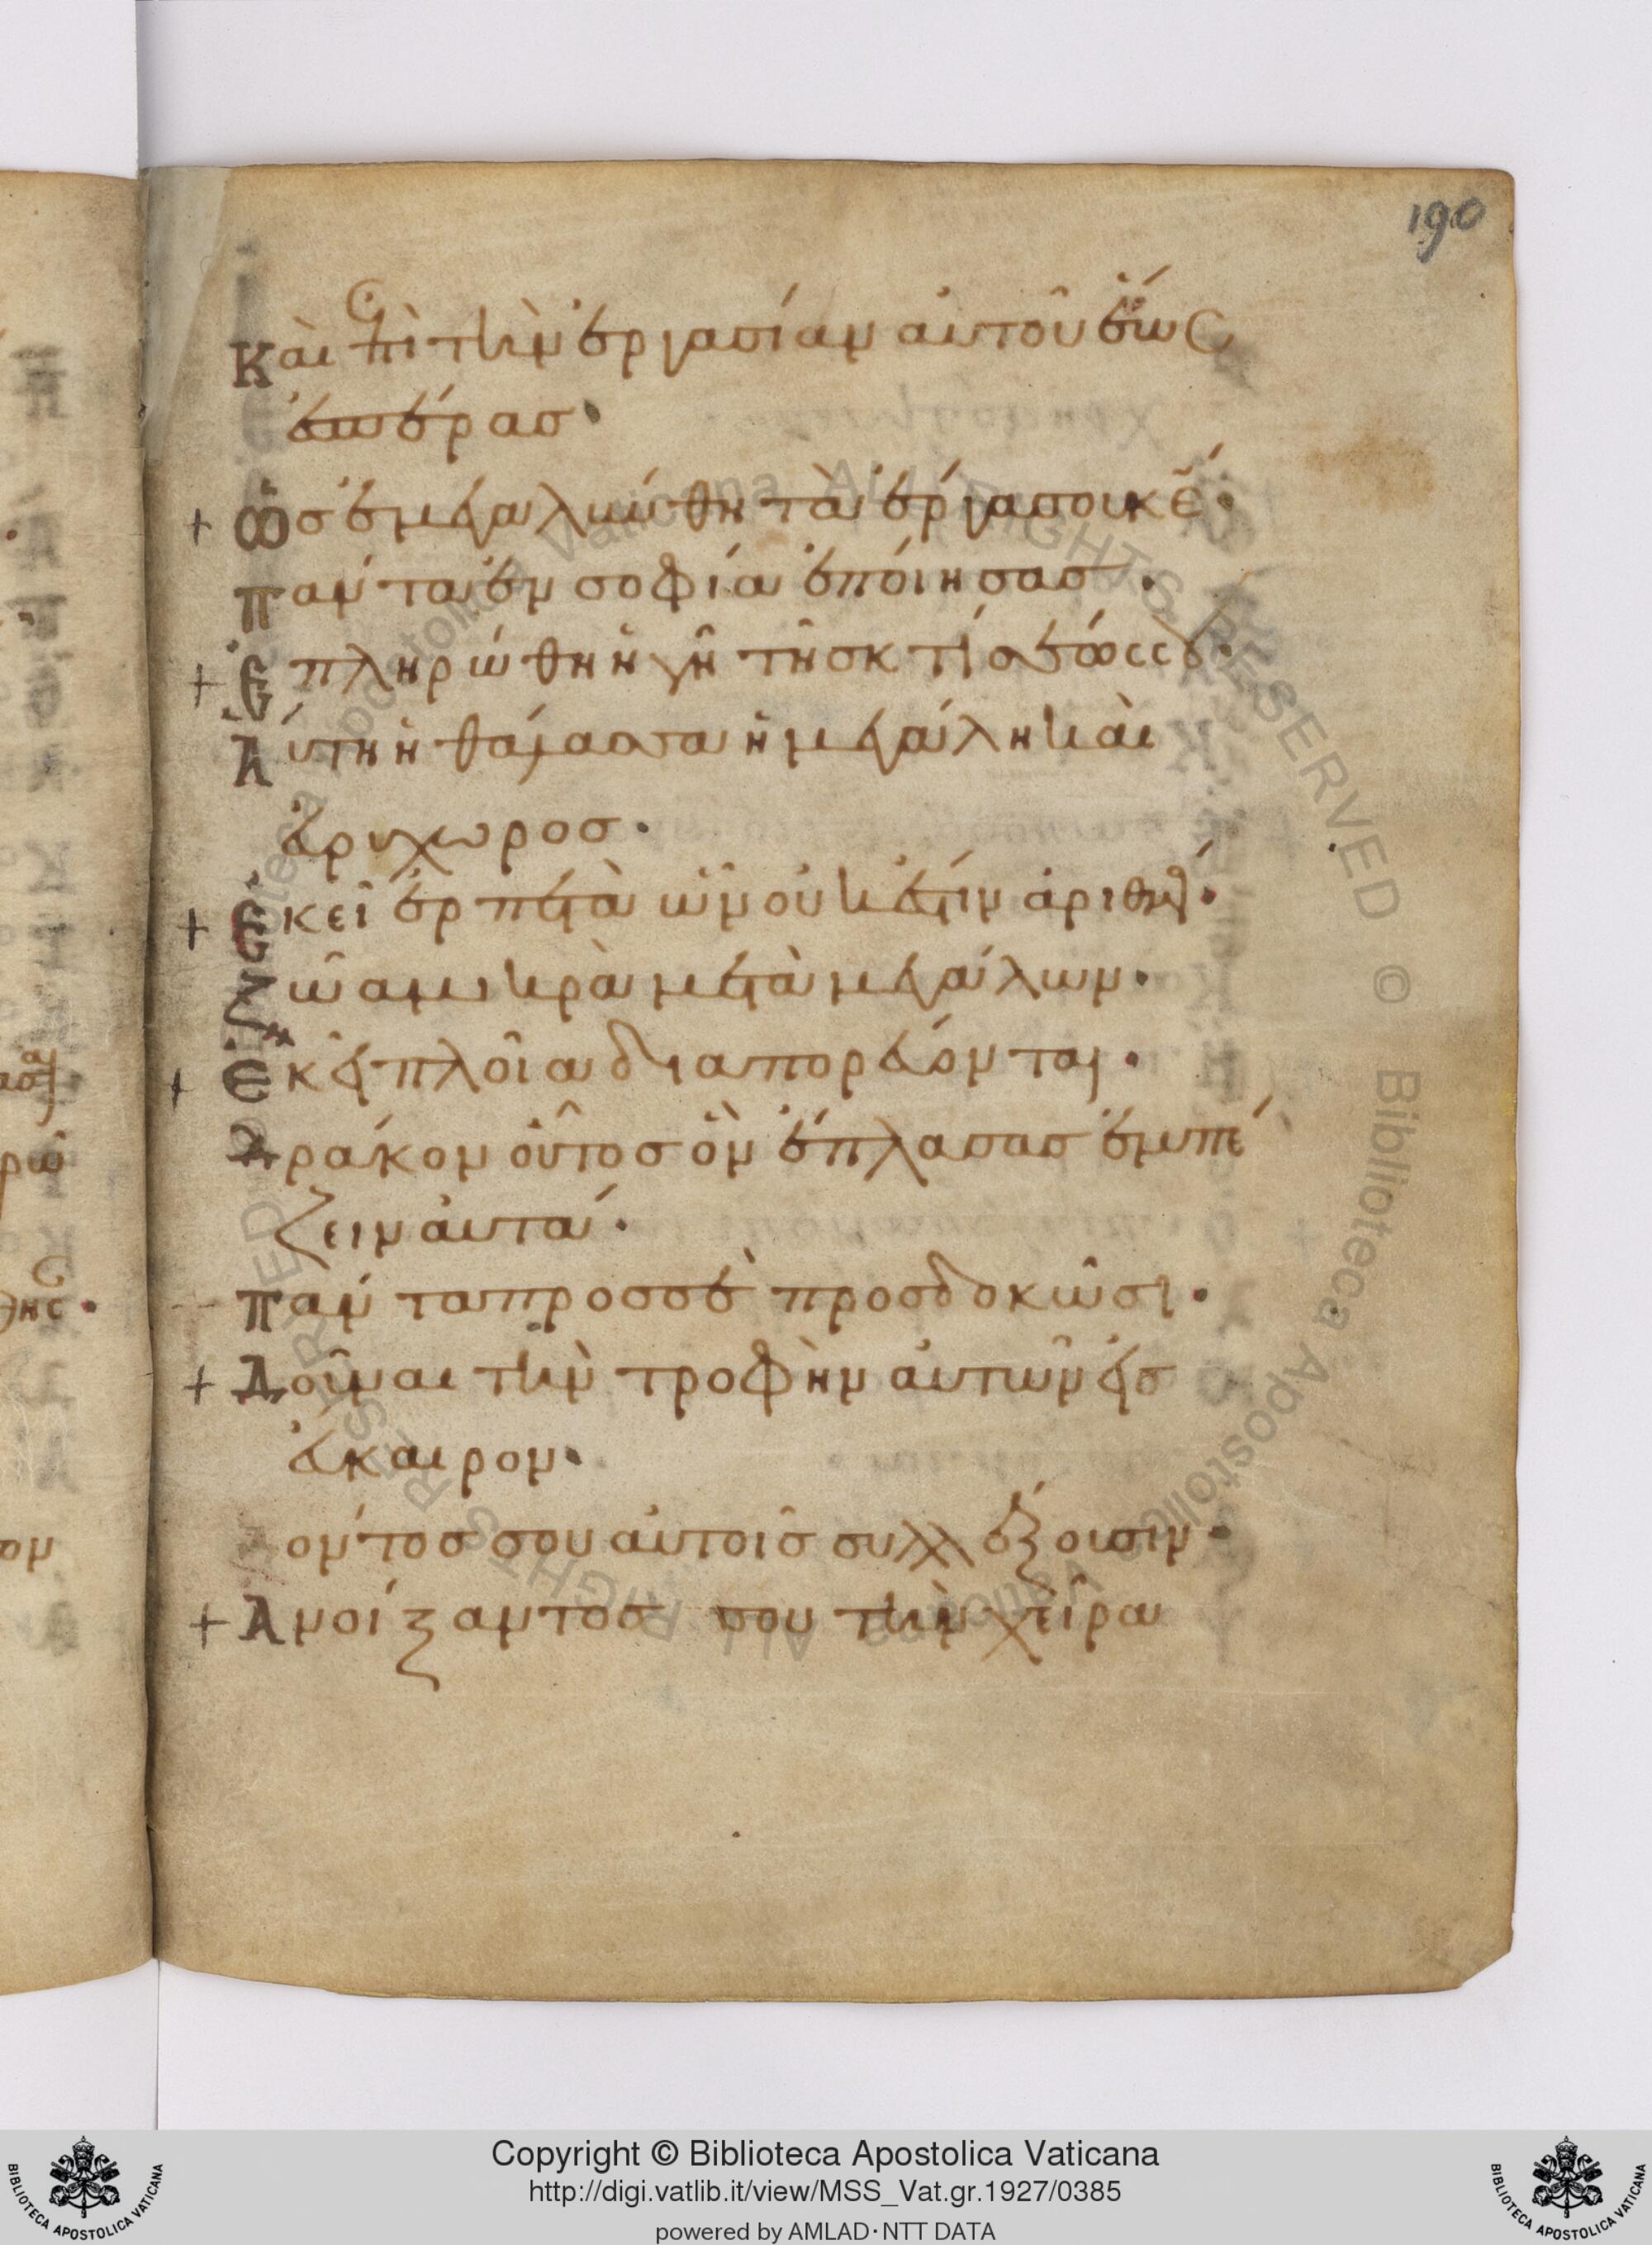 190
Καὶ ἐπὶ τὴν ἐργασίαν αὐτοῦ ἕως
ἑωέρας·
+ Ὡς ἐμεγαλύνθη τὰ ἔργα σου κε·
Πάντα ἐν σοφία ἐποίησας·
+ Ἐπληρώθη ἡ γῆ τῆς κτίσεώς σου·
Αὕτη ἡ θάλασσα ἡ μεγάλη καὶ
εὐρύχωρος·
+ Ἐκεῖ ἑρπετὰ ὧν οὐκ ἔστιν ἀριθμός·
Ζῶα μικρὰ μετὰ μεγάλων·
+ Ἐκεῖ πλοῖα διαπορεύονται·
Δράκον οὗτος ὃν ἔπλασας ἐμπέ
ζειν αυτά·
Πάντα προς σὲ προσδοκῶσι·
+ Δοῦναι τὴν τροφὴν αὐτῶν εἰς
εὔκαιρον·
όντος σου αὐτοῖς συλλέξουσιν·
+ Ανοίξαντος σου τὴν χεῖρα
Copyright © Biblioteca Apostolica Vaticana
http://digi.vatlib.it/view/MSS_Vat.gr.1927/0385
powered by AMLAD·NTT DATA